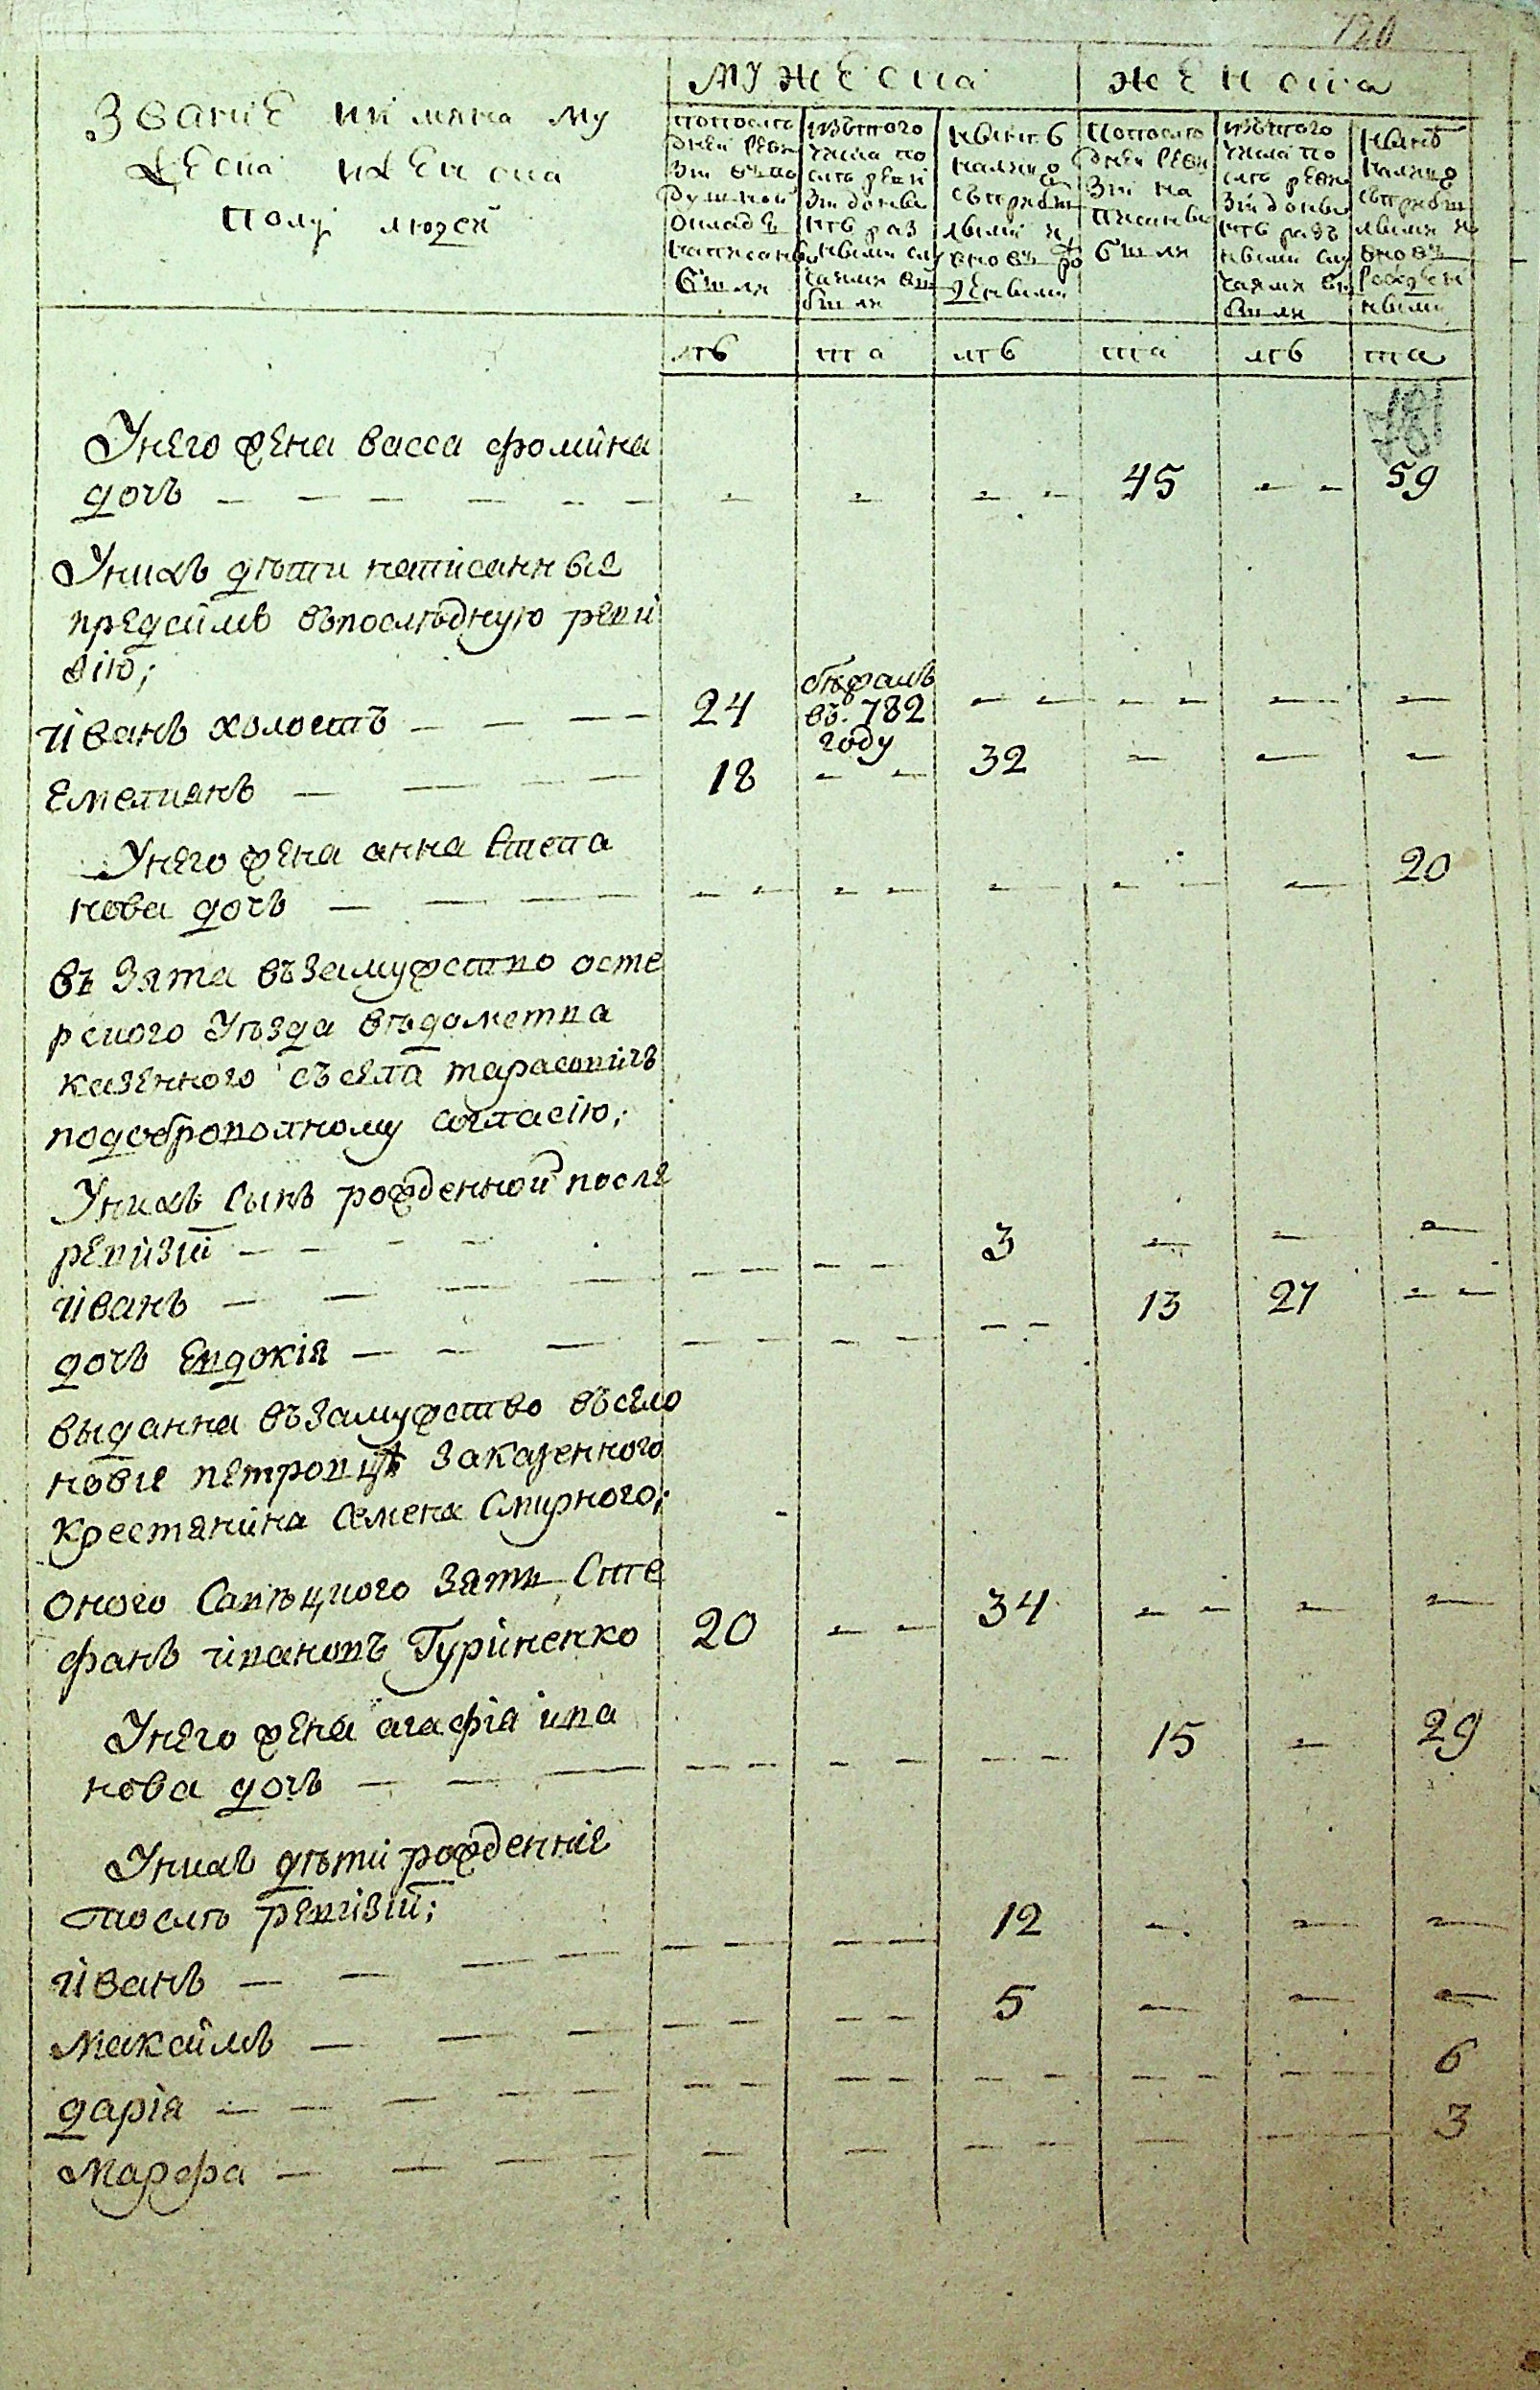 720
Званіе ии мяна му
жеска ижен ска
полу людей
мужеска
женска
попосле
дней реви
зіи въпо
душной
окладъ
написанны
были
изътого
числа по
слѣ реви
зіи до ны
нѣ раз
ными слу
чаями вы
были
нынѣ в
налицо
съприбы
лыми и
вновь ро
жденыими
попосле
дней реви
зіи на
писаны
были
изътого
числа по
слѣ реви
зіи до ны
нѣ разъ
ными слу
чаями вы
были
нынѣ
налицо
съприбы
лыми и
вновь
рожден
ными
лѣ
та
лѣ
та
лѣ
та
Унего жена васса фомина
дочь — — — — — — 45 — — 59
Унихъ дѣти написанные
предсимъ въпослѣдную реви
зію;
Иванъ холостъ — — — 24 бѣжалъ въ 782 году — — — — — —
Емелиянъ — — — 18 — — 32 — — —
Унего жена анна Степа
нова дочь — — — — — — — — — — — 20
въ Зята въЗамужство осте
рского Уѣзда вѣдомства
казенного съ села тарасовичь
подоброволному согласію;
Унихъ Сынъ рожденной после
ревизіи — — — —
Иванъ — — — — — — — — 3 — — —
дочь Евдокія — — — — — — — — — 13 27 — —
выданна въЗамужство въсело
новіе петровцѣ Заказенного
крестянина Семена Смирного;
оного Савѣцкого Зять Сте
фанъ ивановъ Гуриненко 20 — — 34 — — — —
Унего жена агафія ива
нова дочь — — — — — — — — — 15 — 29
Унихъ дѣти рожденніе
послѣ ревизіи;
Иванъ — — — — — — — — 12 — — —
максимъ — — — — — — — 5 — — —
дарія — — — — — — — — — — — — — — — 6
Марфа — — — — — — — — — — 3